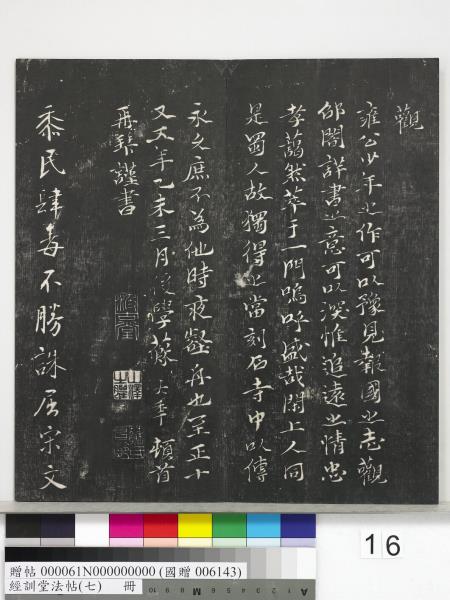 觀
雍公少年之作可以豫見報國之志觀
邵闇詳書之意可以深惟追遠之情忠
孝藹然萃于一門嗚呼盛哉開上人同
是蜀人故獨得之當刻石寺中以傳
永久庶不為他時夜壑舟也至正十
又五年乙未三月後學蘇大年頓首
再拜謹書
黍民肆毒不勝誅屈宋文
16
贈帖 000061N000000000 (國贈 006143)
經訓堂法帖(七) 冊